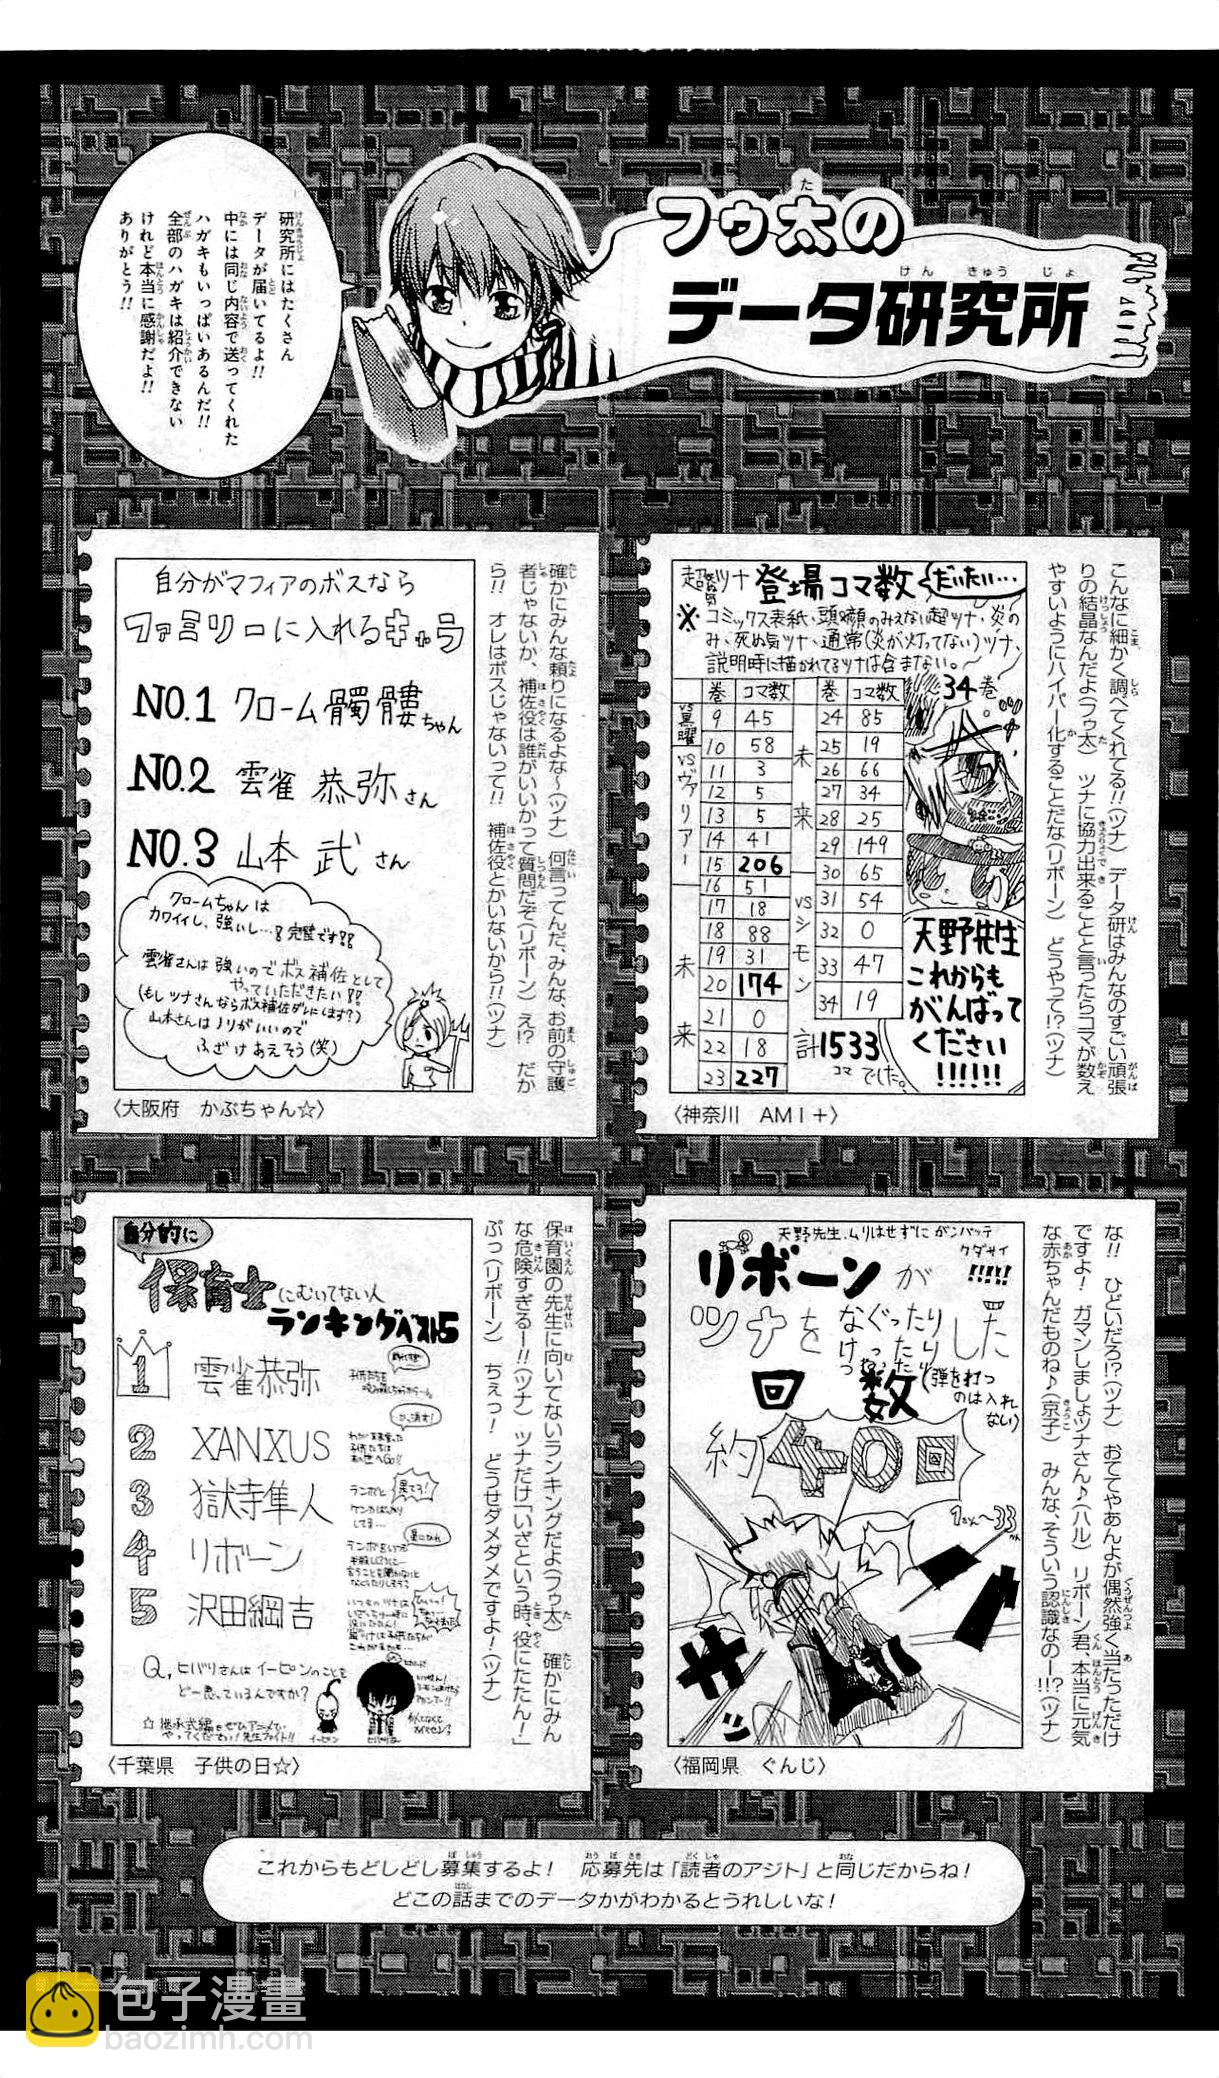 フゥ太の
データ研究所
研究所にはたくさん
データが届いてるよ!!
中には同じ内容で送ってくれた
ハガキもいっぱいあるんだ!!
全部のハガキは紹介できない
けれど本当に感謝だよ!!
ありがとう!!
こんなに細かく調べてくれてる!!(ツナ) データ研はみんなのすごい頑張
りの結晶なんだよ(フゥ太) ツナに協力出来ることと言ったらコマが数え
やすいようにハイパー化することだな(リボーン) どうやって!?(ツナ)
超死ぬ気ツナ 登場コマ数 だいたい…
※コミックス表紙・頭や顔のみえない超ツナ、炎の
み、死ぬ気ツナ、通常(炎が灯ってない)ツナ、
説明時に描かれてるツナは含まない。
巻 コマ数 巻 コマ数
vs黒曜
vsヴァリアー
未来
未来
vsシモン
9 45 24 85
10 58 25 19
11 3 26 66
12 5 27 34
13 5 28 25
14 41 29 149
15 206 30 65
16 51 31 54
17 18 32 0
18 88 33 47
19 31 34 19
20 174
21 0
22 18
23 227
計1533
コマでした。
34巻
天野先生
これからも
がんばって
ください
!!!!!!
〈神奈川 AMI+〉
確かにみんな頼りになるよな〜(ツナ) 何言ってんだ、みんな、お前の守護
者じゃないか、補佐役は誰がいいかって質問だぞ(リボーン) え!? だか
ら!! オレはボスじゃないって!! 補佐役とかいないから!!(ツナ)
自分がマフィアのボスなら
ファミリーに入れるキャラ
NO.1 クローム髑髏ちゃん
NO.2 雲雀 恭弥さん
NO.3 山本 武さん
クロームちゃんは
カワイイし、強いし…!完璧です!!
雲雀さんは強いのでボス補佐として
やっていただきたい!!
(もしツナさんならボス補佐ダレにします?)
山本さんはノリがいいので
ふざけあえそう(笑)
〈大阪府 かぶちゃん☆〉
な!! ひどいだろ!?(ツナ) おててやあんよが偶然強く当たっただけ
ですよ! ガマンしましょツナさん♪(ハル) リボーン君、本当に元気
な赤ちゃんだものね♪(京子) みんな、そういう認識なのー!!?(ツナ)
天野先生、ムリはせずにガンバッテ
クダサイ
!!!!!
リボーンが
ツナをなぐったりけったりした
回数(弾を打つ
のは入れ
ない)
約40回
〈福岡県 ぐんじ〉
保育園の先生に向いてないランキングだよ(フゥ太) 確かにみん
な危険すぎるー!!(ツナ) ツナだけ「いざという時、役にたたん!」
ぷっ(リボーン) ちぇっ! どうせダメダメですよ!(ツナ)
自分的に
保育士にむいてない人
ランキングベスト5
1 雲雀恭弥
2 XANXUS
3 獄寺隼人
4 リボーン
5 沢田綱吉
Q,ヒバリさんはイーピンのことを
どー思っているんですか?
☆継承式編もぜひアニメでい
やってください!先生ファイト!!
イーピン
〈千葉県 子供の日☆〉
これからもどしどし募集するよ! 応募先は「読者のアジト」と同じだからね!
どこの話までのデータかがわかるとうれしいな!
包子漫畫
baozimh.com